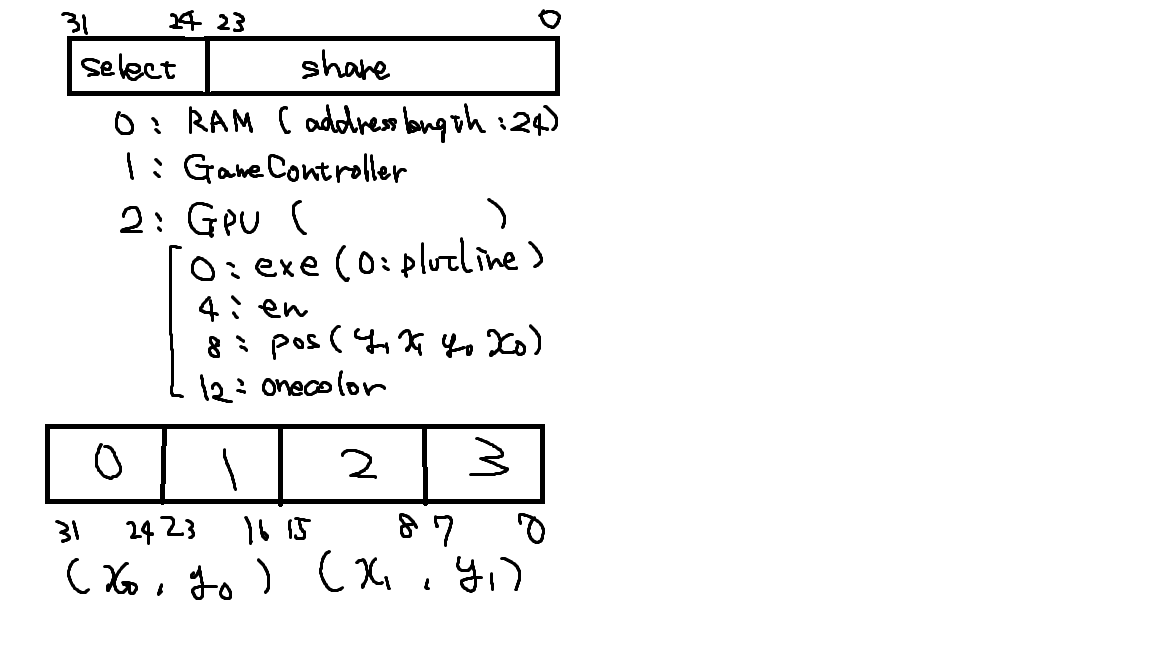 31 24 23 0
select share
0: RAM (addresslength:24)
1: GameController
2: GPU ( )
0: exe (0: plutline)
4: en
8: pos (y₁ x₁ y₀ x₀)
12: onecolor
0 1 2 3
31 24 23 16 15 8 7 0
(x₀, y₀) (x₁, y₁)